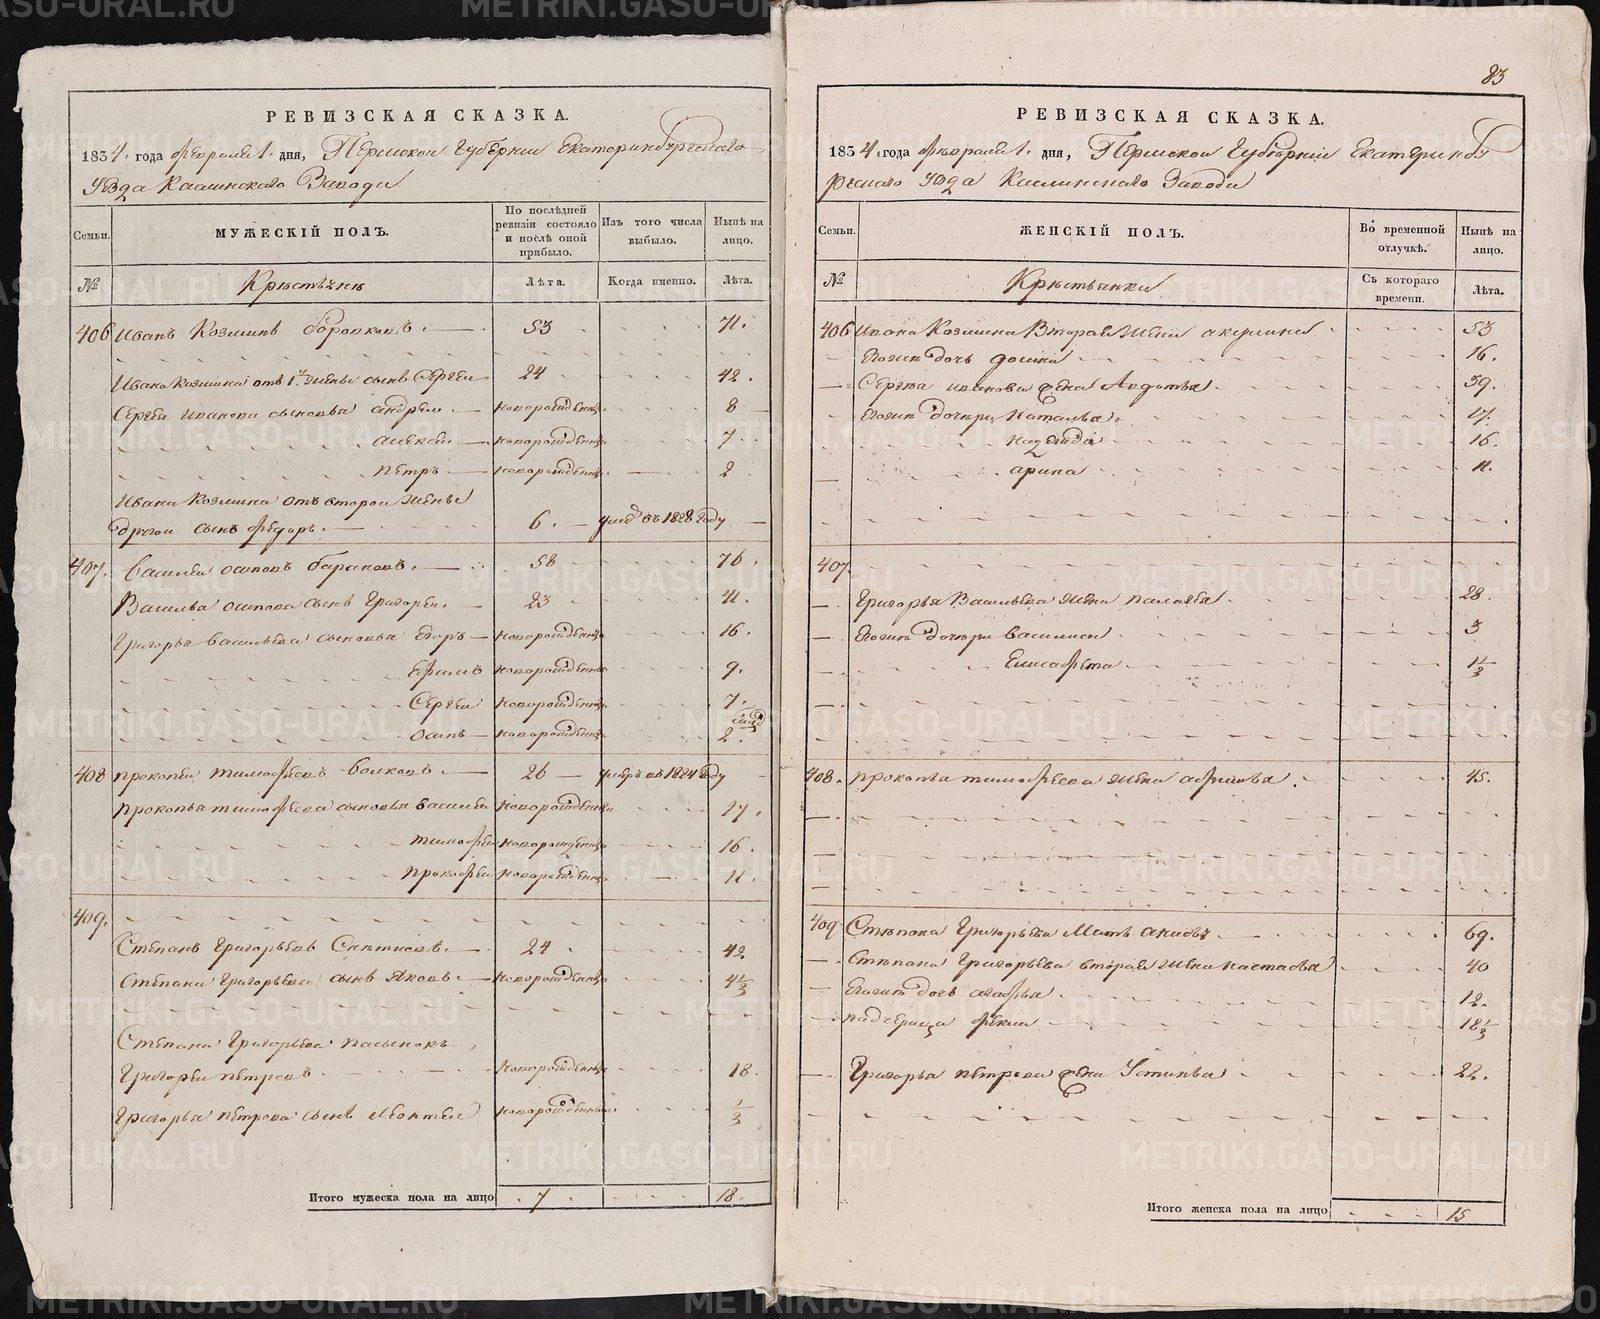 83
РЕВИЗСКАЯ СКАЗКА.
1834 года февраля 1 дня, Пермской Губернии Екатеринбургскаго
Уѣзда Каслинскаго Завода
Семьи.
МУЖЕСКІЙ ПОЛЪ.
По послѣдней ревизіи состояло и послѣ оной прибыло.
Изъ того числа выбыло.
Нынѣ на лицо.
№
Крестьяне
Лѣта.
Когда именно.
Лѣта.
406 Иванъ Козминъ 53 71.
Ивана Козмина отъ 1й жены сынъ Сергей 24 42.
Сергея Иванова сыновья Андрей новорожденъ 8
Алексей новорожденъ 7
Петръ новорожденъ 2
Ивана Козмина отъ второй жены
другой сынъ Федоръ. 6. въ 1828 году
407. Василей Осиповъ 58 76.
Василья Осипова сынъ Григорей. 23 41.
Григорья Васильева сыновья Егоръ новорожденъ 16.
Ефимъ новорожденъ 9.
Сергей новорожденъ 7.
Осипъ новорожденъ 2.
408 Прокопей Тимофеевъ Волковъ. 26 умеръ въ 1824 году
Прокопья Тимофеева сыновья Василей новорожденъ 27.
Тимофей новорожденъ 16.
Прокофей новорожденъ 11.
409.
Степанъ Григорьевъ 24 42
Степана Григорьева сынъ Яковъ новорожденъ 4 1/3
Степана Григорьева пасынокъ,
Григорей Петровъ новорожденъ 18.
Григорья Петрова сынъ Леонтей новорожденъ 1/3
Итого мужеска пола на лицо 7. 18.
РЕВИЗСКАЯ СКАЗКА.
1834 года февраля 1 дня, Пермской Губерніи Екатеринбу
ргскаго Уѣзда Каслинскаго Завода
Семьи.
ЖЕНСКІЙ ПОЛЪ.
Во временной отлучкѣ.
Нынѣ на лицо.
№
Крестьянки
Съ котораго времени.
Лѣта.
406 Ивана Козмина вторая жена Акулина 53
Ихъ дочь 16.
Сергея Иванова жена Авдотья 39.
Ихъ дочери Наталья 17.
Надежда 16.
Арина 11.
407.
Григорья Васильева жена Палагея 28.
Ихъ дочери Василиса 3
Елисафета 1 1/2
408. Прокопья Тимофеева жена Афимья 45.
409 Степана Григорьева мать 69.
Степана Григорьева вторая жена Настасья 40
Ихъ дочь Агафья 12.
падчерица Фекла 18 1/3
Григорья Петрова жена Устинья 22.
Итого женска пола на лицо 15